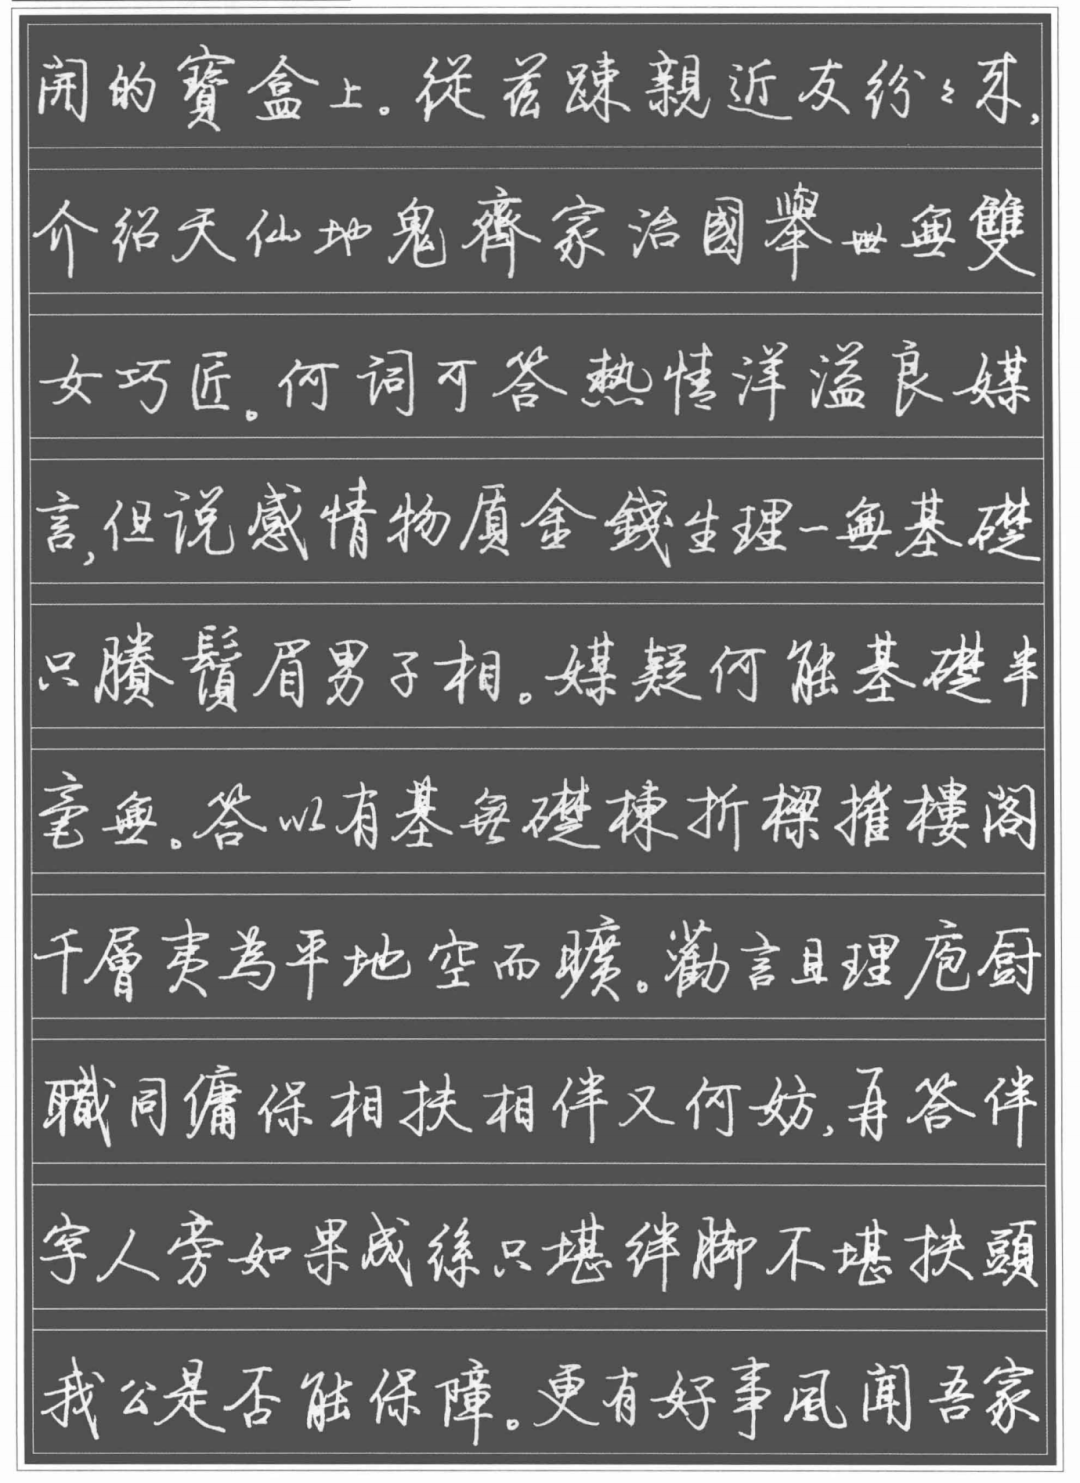 開的寶盒上。從茲疎親近友紛々来,
介紹天仙地鬼齊家治國舉世無雙
女巧匠。何詞可答熱情洋溢良媒
言,但说感情物質金錢生理一無基礎
只賸鬚眉男子相。媒疑何能基礎半
毫無。答以有基無礎棟折樑摧樓閣
千層夷為平地空而曠。勸言且理庖厨
職同傭保相扶相伴又何妨,再答伴
字人旁如果成絲只堪絆脚不堪扶頭
我公是否能保障。更有好事風聞吾家